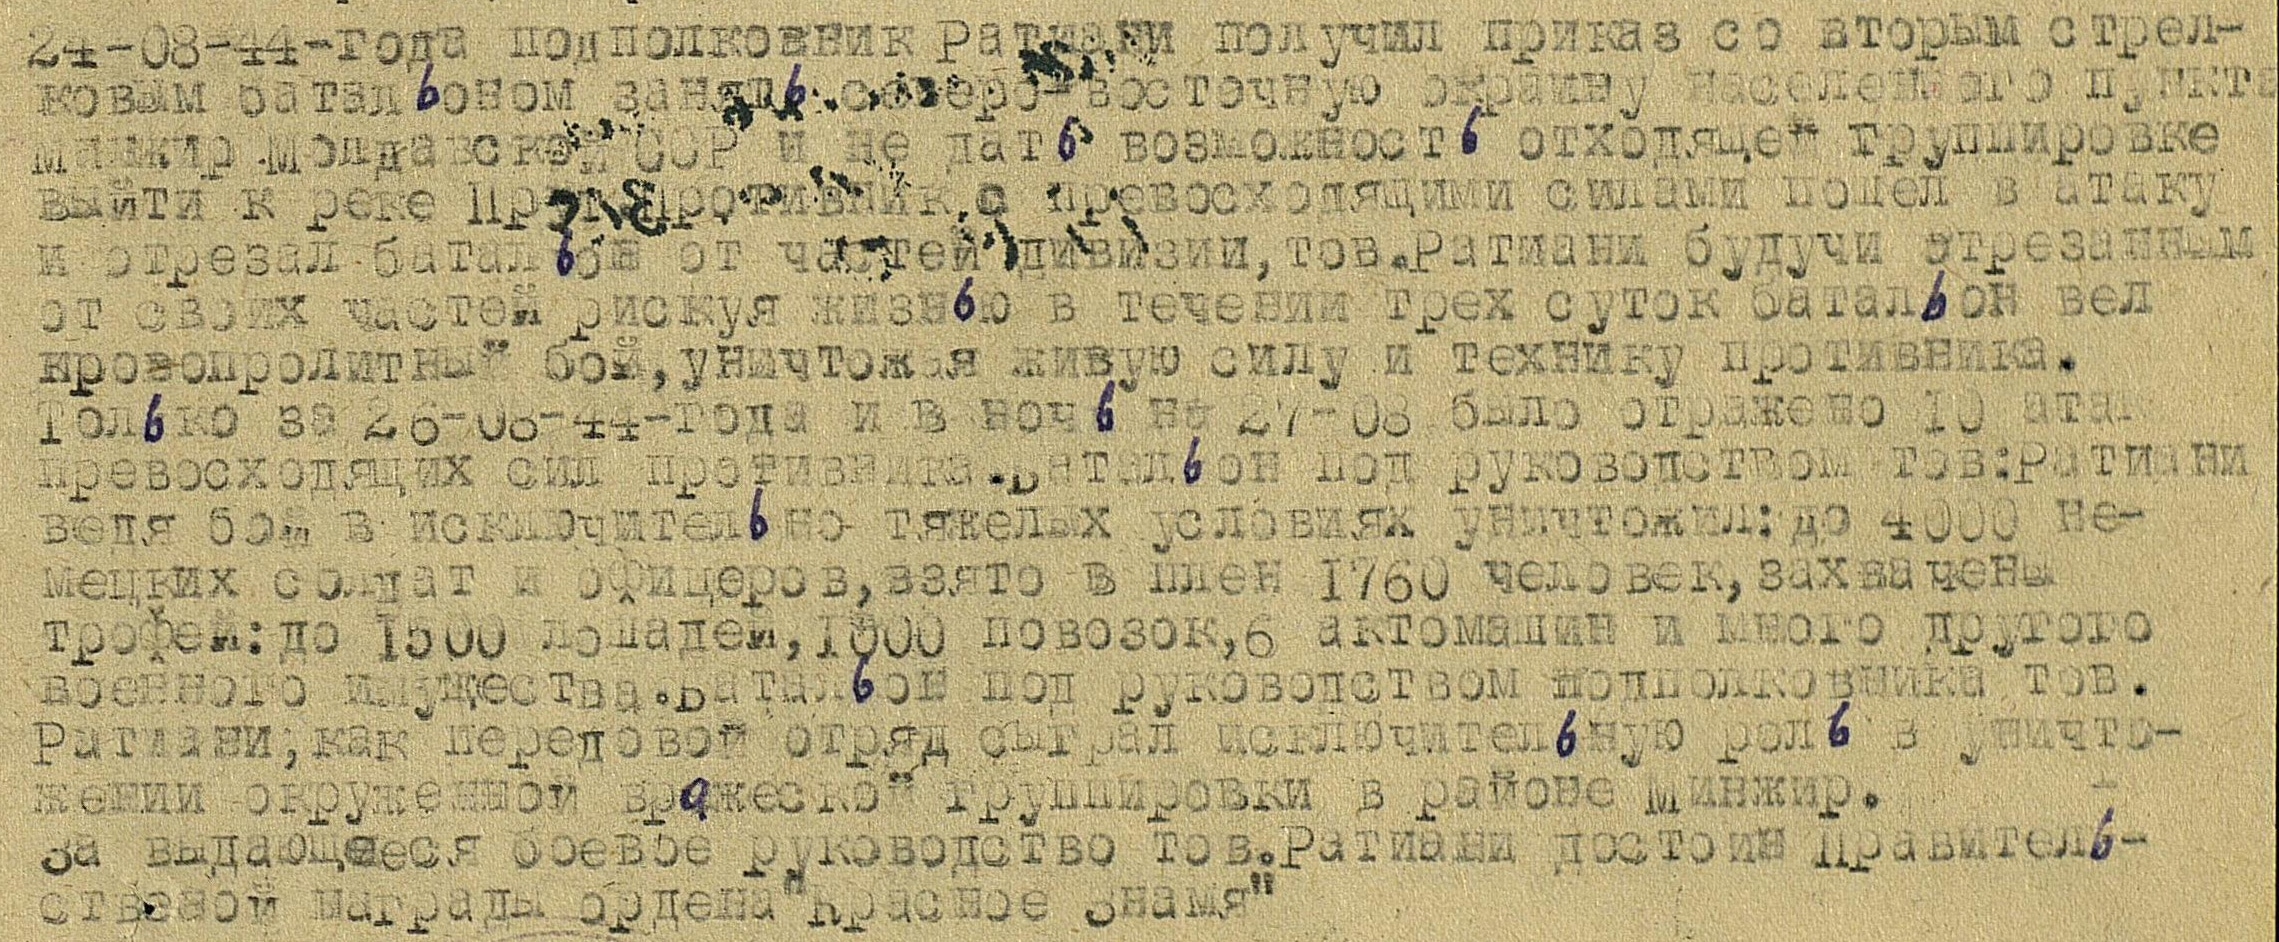 24-08-44-года подполковник Ратиани получил приказ со вторым стрел-
ковым батальоном занять северо-восточную окраину населенного пункта
минжир Молдавской ССР и не дать возможность отходящей группировке
выйти к реке Прут противник с превосходящими силами пошел в атаку
и отрезал батальон от частей дивизии, тов.Ратиани будучи отрезанным
от своих частей рискуя жизнью в течении трех суток батальон вел
кровопролитный бой, уничтожая живую силу и технику противника.
Только за 26-08-44-года и в ночь на 27-08 было отражено 10 атак
превосходящих сил противника.Батальон под руководством тов:Ратиани
ведя бой в исключительно тяжелых условиях уничтожил: до 4000 не-
мецких солдат и офицеров, взято в плен 1760 человек, захвачены
трофей: до 1500 лошадей, 1000 повозок, 6 актомашин и много другого
военного имущества.Батальон под руководством подполковника тов.
Ратиани, как передовой отряд сыграл исключительную роль в уничто-
жении окруженной вражеской группировки в районе Минжир.
За выдающееся боевое руководство тов.Ратиани достоин Правитель-
ственой награды ордена "Красное Знамя"